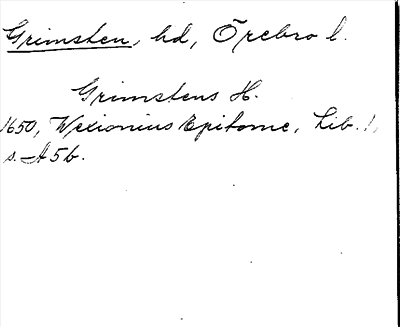 Grimsten, hd, Örebro l.
Grimstens H.
1650, Wexionius Epitome, Lib. 1,
s. A 5 b.